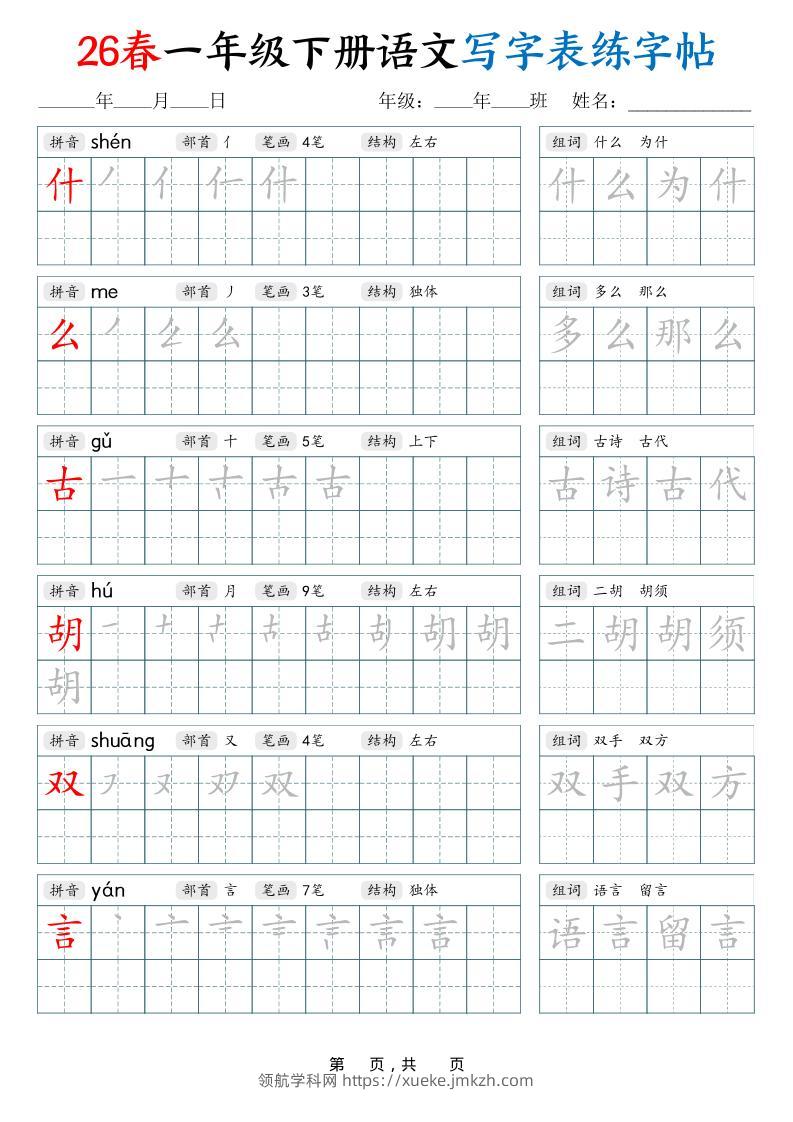 26春一年级下册语文写字表练字帖
______年____月____日 年级：____年____班 姓名：____________
拼音 shén 部首 亻 笔画 4笔 结构 左右 组词 什么 为什
什 丿 亻 仁 什 什 么 为 什
拼音 me 部首 丿 笔画 3笔 结构 独体 组词 多么 那么
么 丿 么 么 多 么 那 么
拼音 gǔ 部首 十 笔画 5笔 结构 上下 组词 古诗 古代
古 一 十 古 古 古 古 诗 古 代
拼音 hú 部首 月 笔画 9笔 结构 左右 组词 二胡 胡须
胡 一 十 古 古 古 胡 胡 胡 二 胡 胡 须
胡
拼音 shuāng 部首 又 笔画 4笔 结构 左右 组词 双手 双方
双 フ 又 双 双 双 手 双 方
拼音 yán 部首 言 笔画 7笔 结构 独体 组词 语言 留言
言 丶 亠 言 言 言 言 言 语 言 留 言
第 页，共 页
领航学科网 https://xueke.jmkzh.com